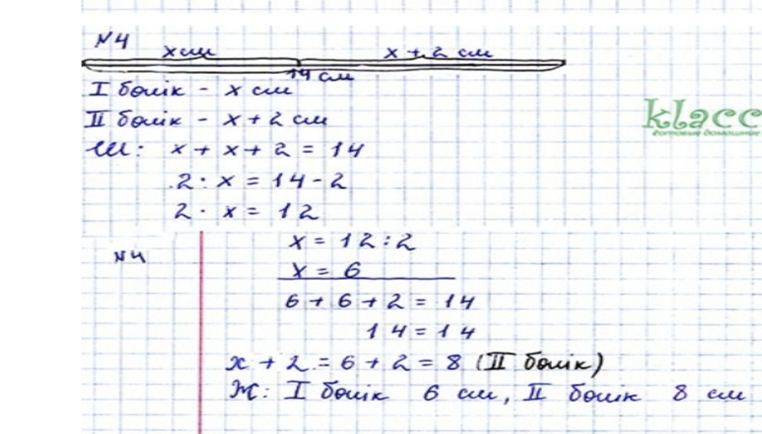 №4
x см x + 2 см
14 см
I бөлік - x см
II бөлік - x + 2 см
Ш: x + x + 2 = 14
2 · x = 14 - 2
2 · x = 12
№4
x = 12 : 2
x = 6
6 + 6 + 2 = 14
14 = 14
x + 2 = 6 + 2 = 8 (II бөлік)
Ж: I бөлік 6 см, II бөлік 8 см
klacc